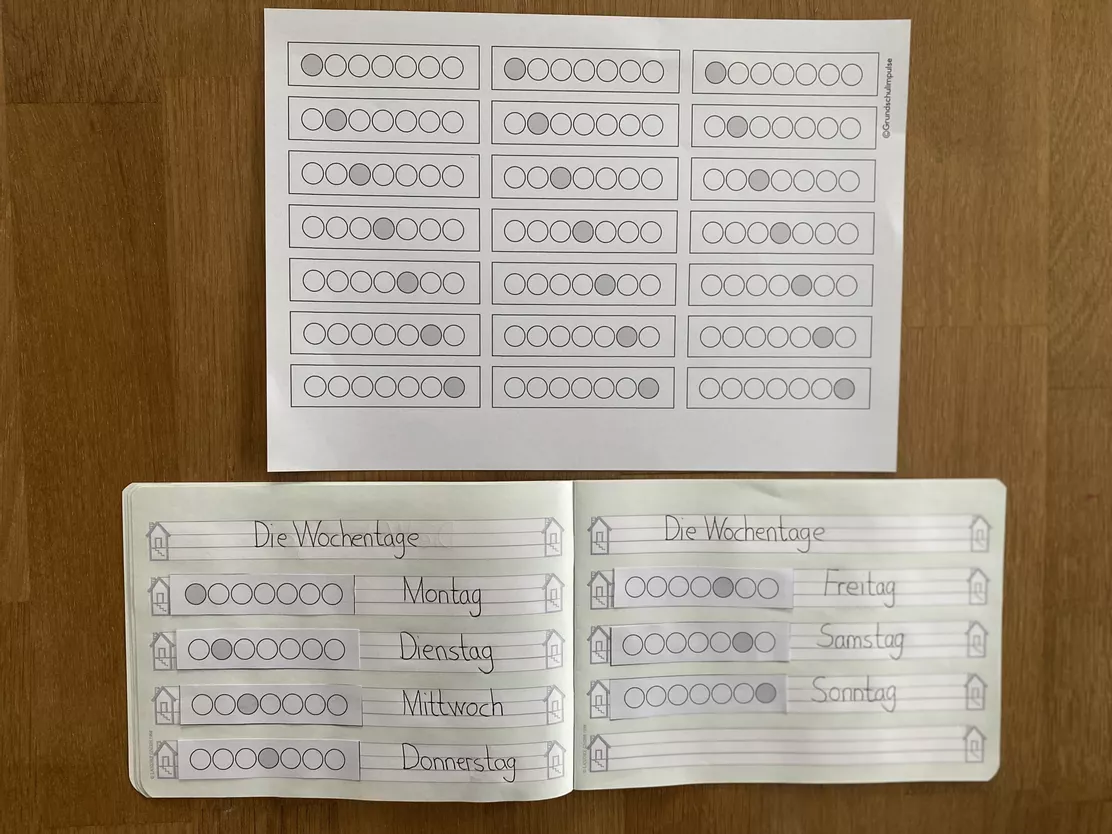 ©Grundschulimpulse
Die Wochentage
Montag
Dienstag
Mittwoch
Donnerstag
Die Wochentage
Freitag
Samstag
Sonntag